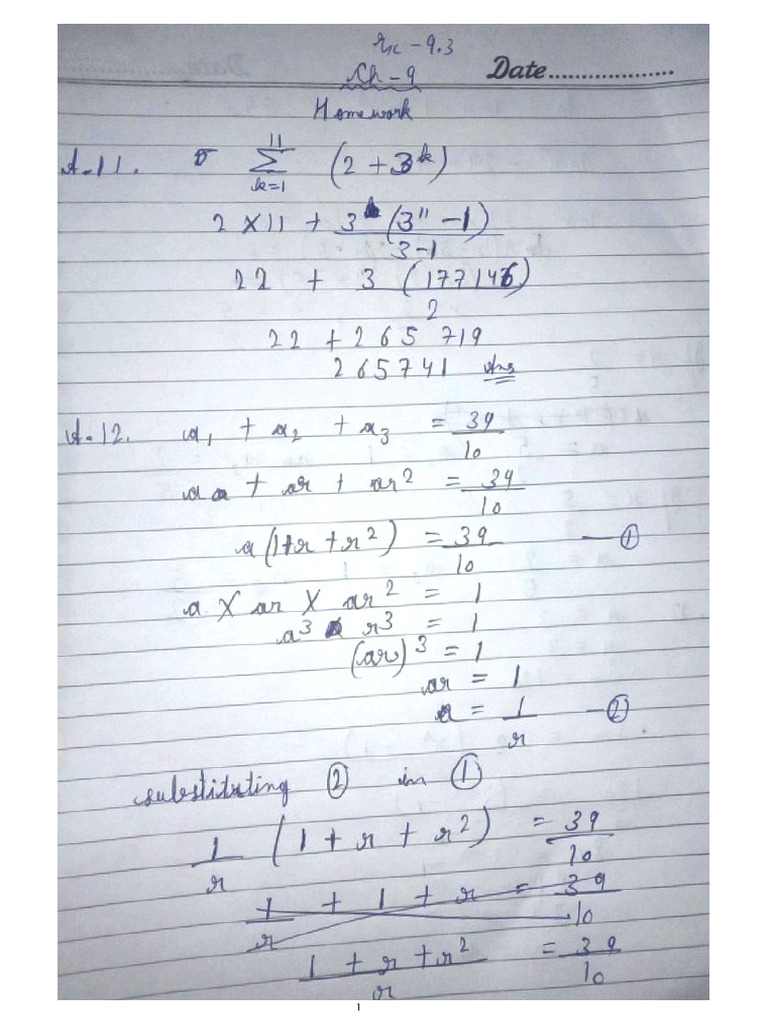 Ex - 9.3
Ch - 9 Date....................
Homework
A-11. 5 ∑ₖ₌₁¹¹ (2 + 3ᵏ)
2 × 11 + 3 (3¹¹ - 1) / 3-1
22 + 3 (177146) / 2
22 + 265 719
265741 Ans
A-12. a₁ + a₂ + a₃ = 39/10
a + ar + ar² = 39/10
a (1+r + r²) = 39/10 — ①
a × ar × ar² = 1
a³ r³ = 1
(ar)³ = 1
ar = 1
a = 1/r — ②
substituting ② in ①
1/r (1 + r + r²) = 39/10
1/r + 1 + r = 39/10
1 + r + r² / r = 39/10
1